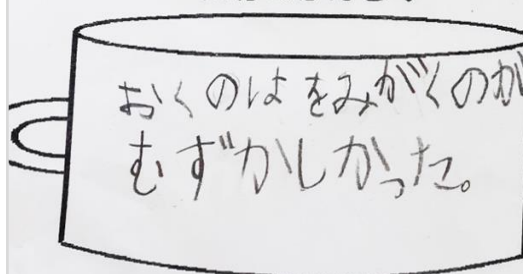 おくのはをみがくのが
むずかしかった。